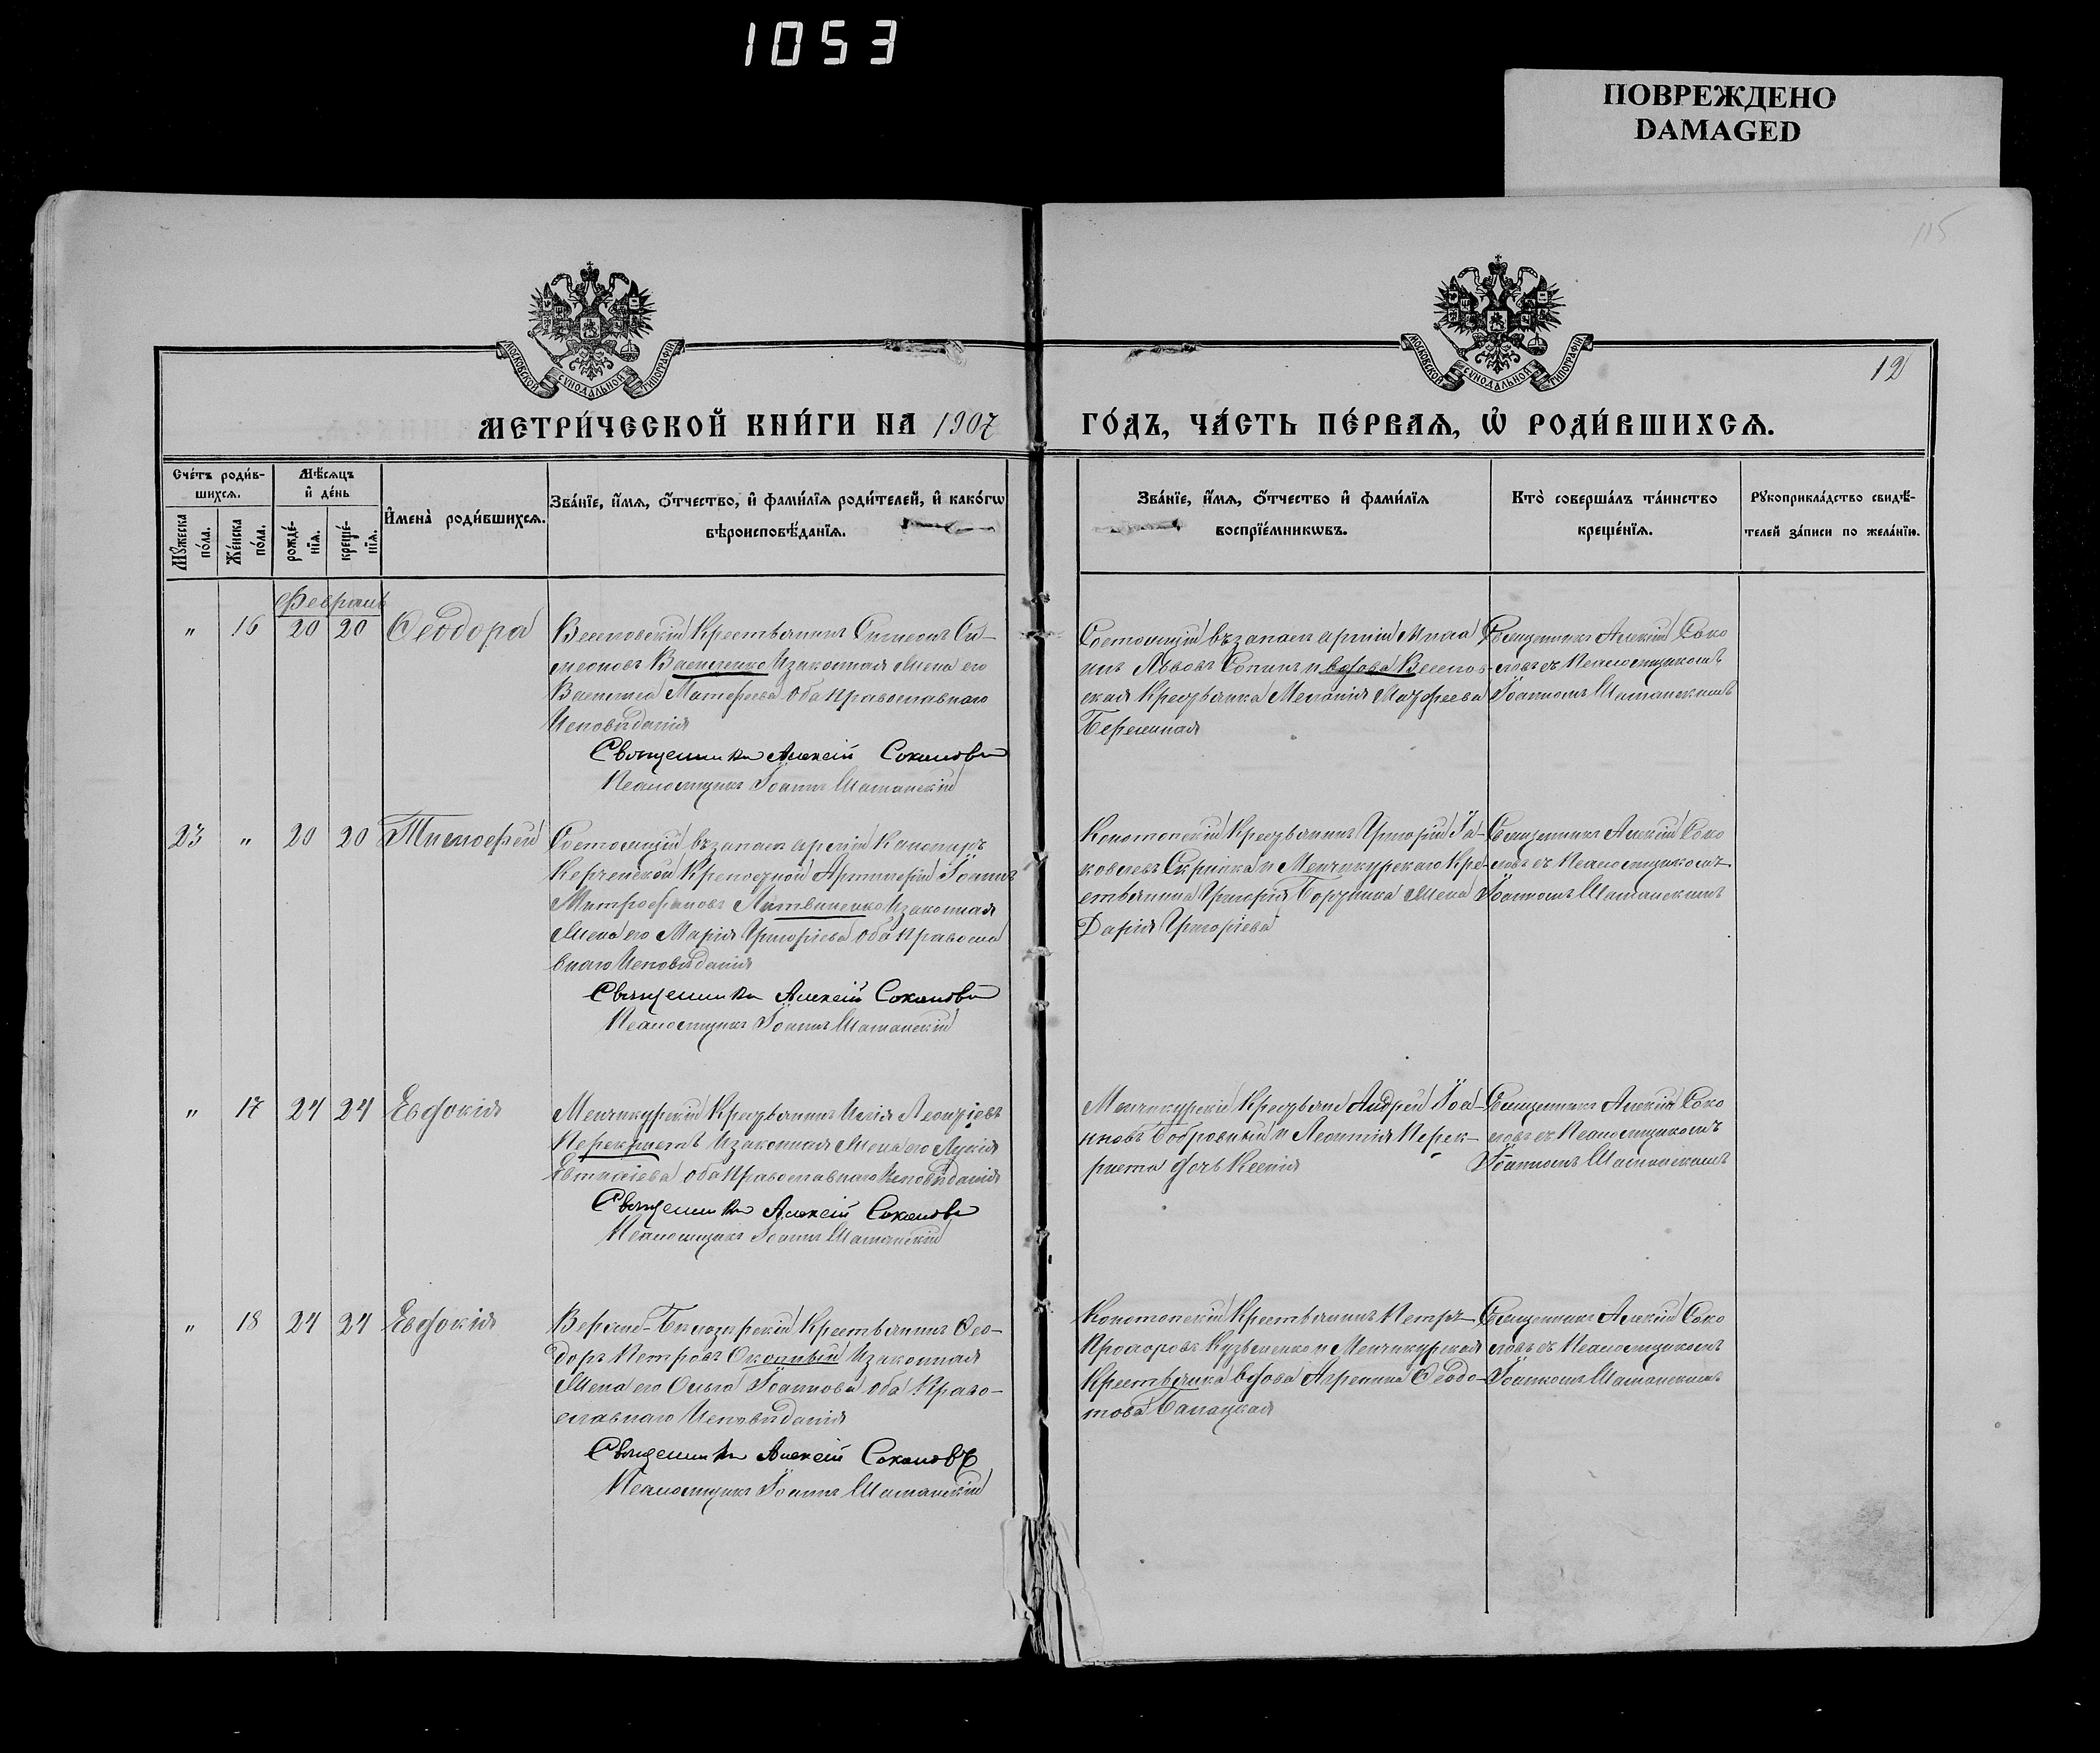 1053
ПОВРЕЖДЕНО
DAMAGED
115
МОСКОВСКОЙ СУНОДАЛЬНОЙ ТИПОГРАФІИ
МОСКОВСКОЙ СУНОДАЛЬНОЙ ТИПОГРАФІИ
12
МЕТРИ́ЧЕСКОЙ КНИ́ГИ НА 1907
ГО́ДЪ, ЧА́СТЬ ПЕ́РВАѦ, Ѡ҆ РОДИ́ВШИХСѦ.
Сче́тъ роди́в-
шихсѧ.
Мѣ́сѧцъ
и҆ де́нь
Мꙋ́жеска
по́ла.
Же́нска
по́ла.
рожде́-
нїѧ.
креще́-
нїѧ.
И҆мена̀ роди́вшихсѧ.
Зва́нїе, и҆́мѧ, ѻ҆́тчество, и҆ фами́лїѧ роди́телей, и҆ како́гѡ
вѣроисповѣ́данїѧ.
Зва́нїе, и҆́мѧ, ѻ҆́тчество и҆ фами́лїѧ
воспрїе́мникѡвъ.
Кто̀ соверша́лъ та́инство
креще́нїѧ.
Рꙋкоприкла́дство свидѣ́-
телей за́писи по жела́нїю.
Февраль
" 16 20 20 Ѳеодора
Веселовскій Крестьянинъ Симеонъ Си-
меоновъ Василенко И законная жена его
Василиса Матѳеева Оба Православнаго
Исповѣданія
Священникъ Алексій Соколовъ
Псаломщикъ Іоаннъ Шатанскій
Состоящій въ запасѣ арміи
вдова Веселов-
ская Крестьянка Меланія Матѳеева
Священникъ Алексій Соко
ловъ съ Псаломщикомъ
Іоанномъ Шатанскимъ
23 " 20 20 Тимоѳей
Состоящій въ запасѣ арміи Канониръ
Керченской Крепостной Артилеріи Іоаннъ
Митрофановъ Литвиненко И законная
жена его Марія Григоріева Оба Правосла
внаго Исповѣданія
Священникъ Алексій Соколовъ
Псаломщикъ Іоаннъ Шатанскій
Конотопскій Крестьянинъ Григорій Іа-
ковлевъ Скрипка и Менчикурскаго Кре-
стьянина Григорія жена
Дарія Григоріева
Священникъ Алексій Соко
ловъ съ Псаломщикомъ
Іоанномъ Шатанскимъ
" 17 24 24 Евдокія
Менчикурскій Крестьянинъ Илія Леонтіевъ
Перекрестъ И законная жена его Лукія
оба Православнаго Исповѣданія
Священникъ Алексій Соколовъ
Псаломщикъ Іоаннъ Шатанскій
Менчикурскіе Крестьяне Андрей Іоа-
нновъ Бобровицкій и Леонтія Перек-
реста дочь Ксенія
Священникъ Алексій Соко
ловъ съ Псаломщикомъ
Іоанномъ Шатанскимъ
" 18 24 24 Евдокія
Верхне-Бѣлозерскій Крестьянинъ Ѳео-
доръ Петровъ И законная
жена его Ольга Іоаннова оба Право-
славнаго Исповѣданія
Священникъ Алексій Соколовъ
Псаломщикъ Іоаннъ Шатанскій
Конотопскій Крестьянинъ Петръ
Прохоровъ и Менчикурская
Крестьянка вдова Агрепина Ѳеодо-
това
Священникъ Алексій Соко
ловъ съ Псаломщикомъ
Іоанномъ Шатанскимъ